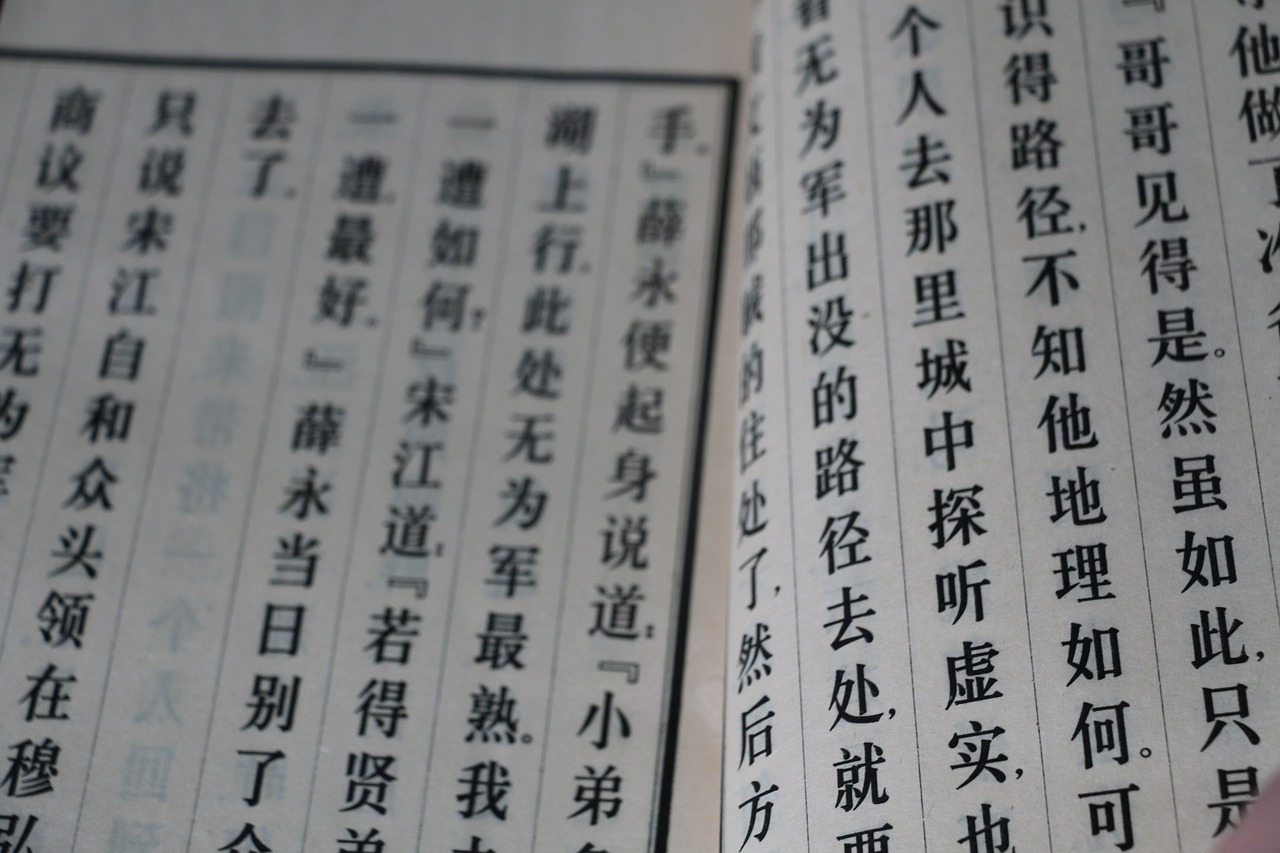 他做了
『哥哥见得是。然虽如此,只是
识得路径,不知他地理如何。可
个人去那里城中探听虚实,也
看无为军出没的路径去处,就要
的住处了,然后方
手。』薛永便起身说道:『小弟
湖上行,此处无为军最熟。我
一遭如何?』宋江道:『若得贤弟
一遭,最好。』薛永当日别了众
去了。
只说宋江自和众头领在穆弘
商议要打无为军